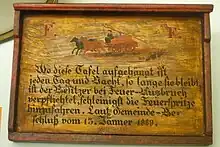 F F
Wo diese Tafel aufgehängt ist,
jeden Tag und Nacht, so lange sie bleibt
ist der Besitzer bei Feuer-Ausbruch
verpflichtet, schleinigst die Feuerspritze
hinzuführen. Laut Gemeinde-Be-
schluß vom 13. Jänner 1889.